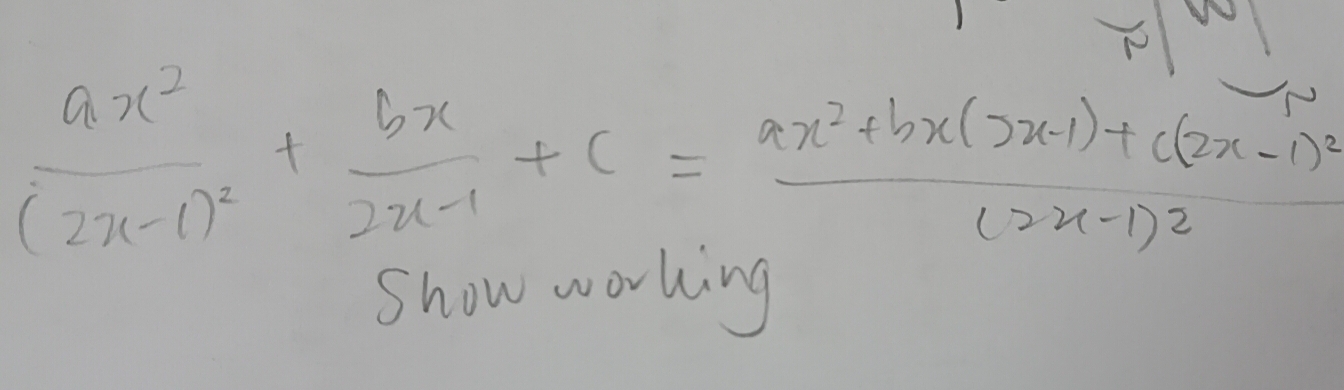 ax²/(2x-1)² + bx/2x-1 + C = ax²+bx(2x-1)+c(2x-1)²/(2x-1)2
Show working